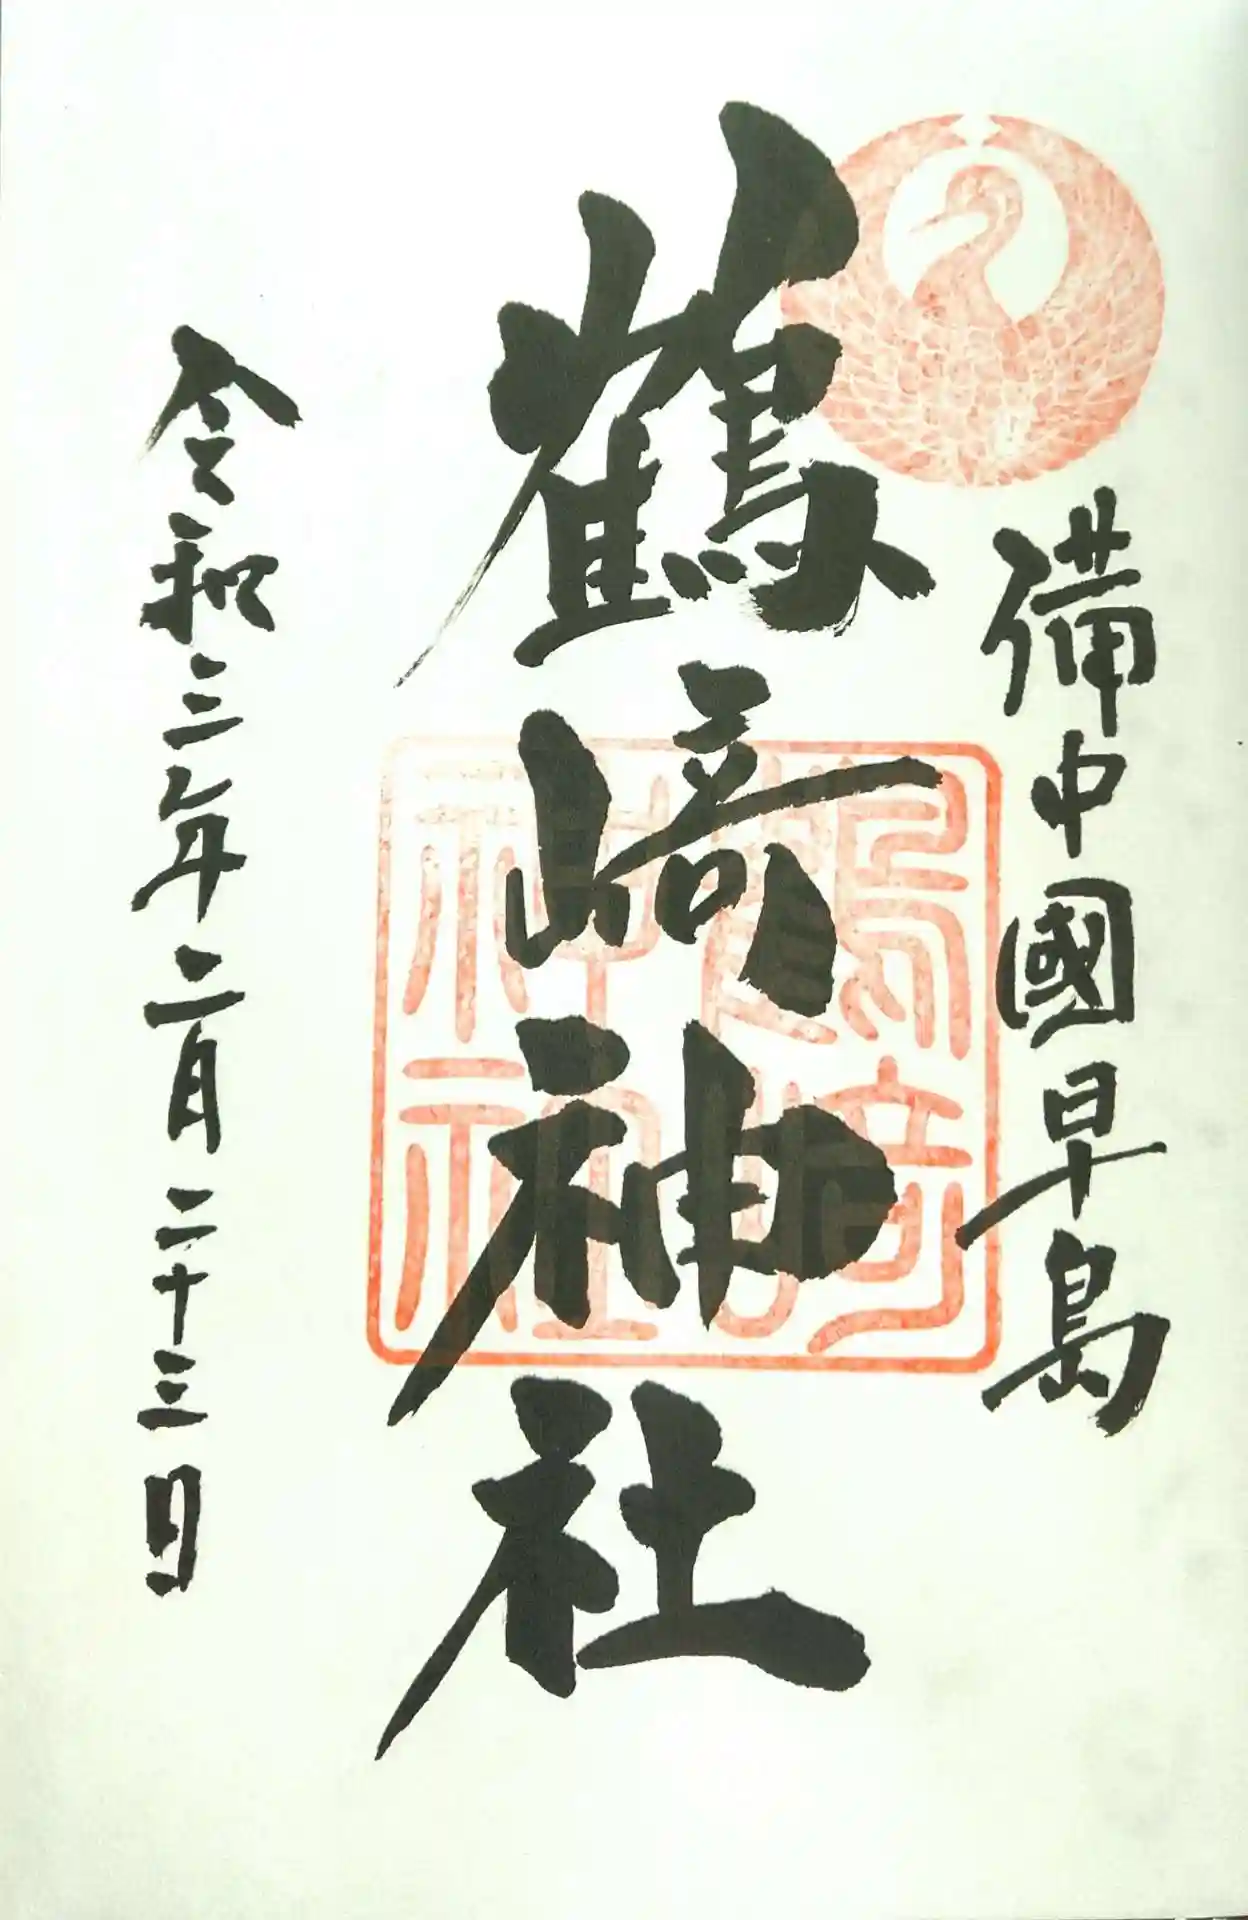 備中國早島
鶴﨑神社
鶴﨑神社
令和三年二月二十三日